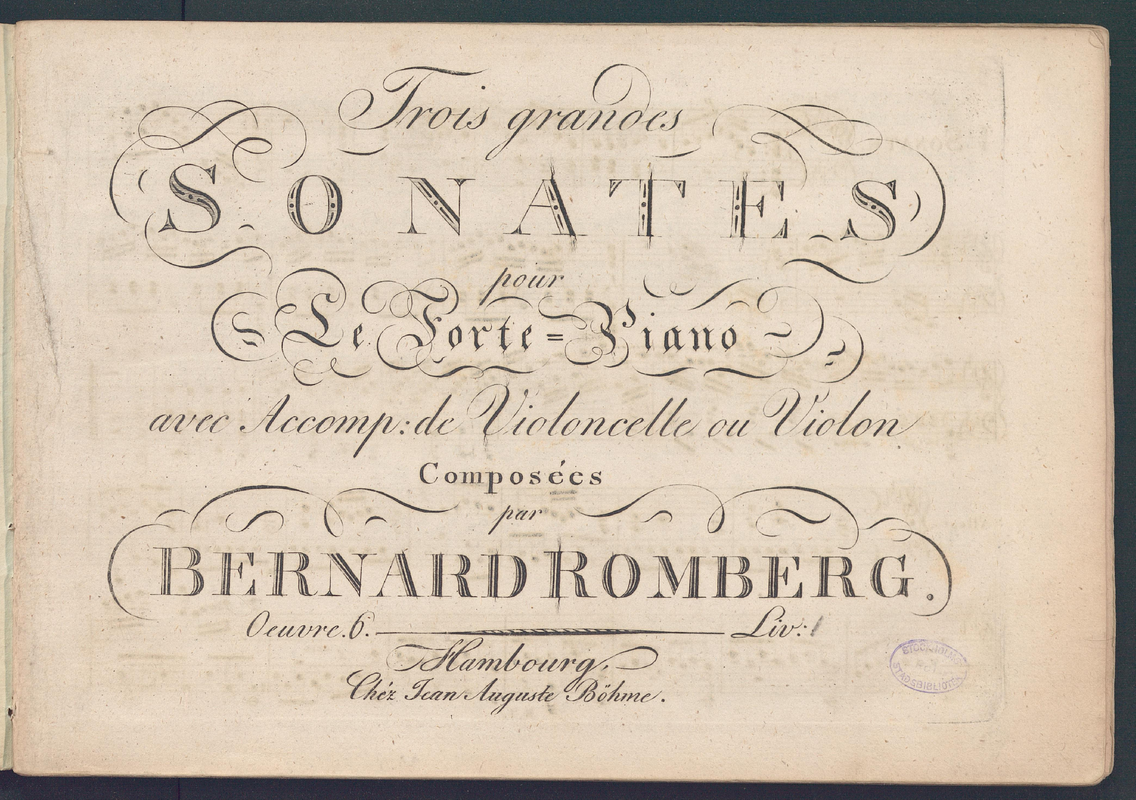 Trois grandes
SONATES
pour
Le Forte=Piano
avec Accomp: de Violoncelle ou Violon
Composées
par
BERNARD ROMBERG.
Oeuvre.6. Liv: 1
Hambourg,
Chéz Jean Auguste Böhme.
STOCKHOLMS
STADSBIBLIOTEK